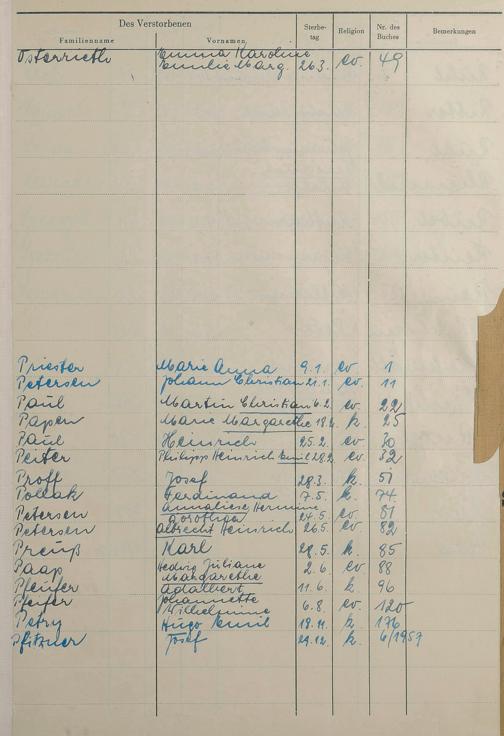 Des Verstorbenen
Familienname Vornamen Sterbe-tag Religion Nr. des Buches Bemerkungen
Osterrieth Emma Karoline
Emilie Marg. 26.3. ev. 49
Priester Marie Anna 9.1. ev 1
Petersen Johann Christian 21.1. ev. 11
Paul Martin Christian 6.2. ev. 22
Papen Marie Margarethe 18.2. k. 25
Paul Heinrich 25.2. ev 30
Peiter Philipp Heinrich Emil 28.2. ev 32
Proff Josef 28.3. k. 51
Pollak Ferdinand 7.5. k. 74
Petersen Annaliese Hermine
Dorothea 24.5. ev. 81
Petersen Albrecht Heinrich 26.5. ev 82
Preuß Karl 28.5. k. 85
Paap Hedwig Juliane
Margarethe 2.6. ev 88
Pfeifer Adalbert 11.6. k 96
Pfeifer Johannette
Wilhelmine 6.8. ev. 120
Petry Hugo Emil 18.11. k. 176
Pfitzner Josef 29.12. k. 6/1957